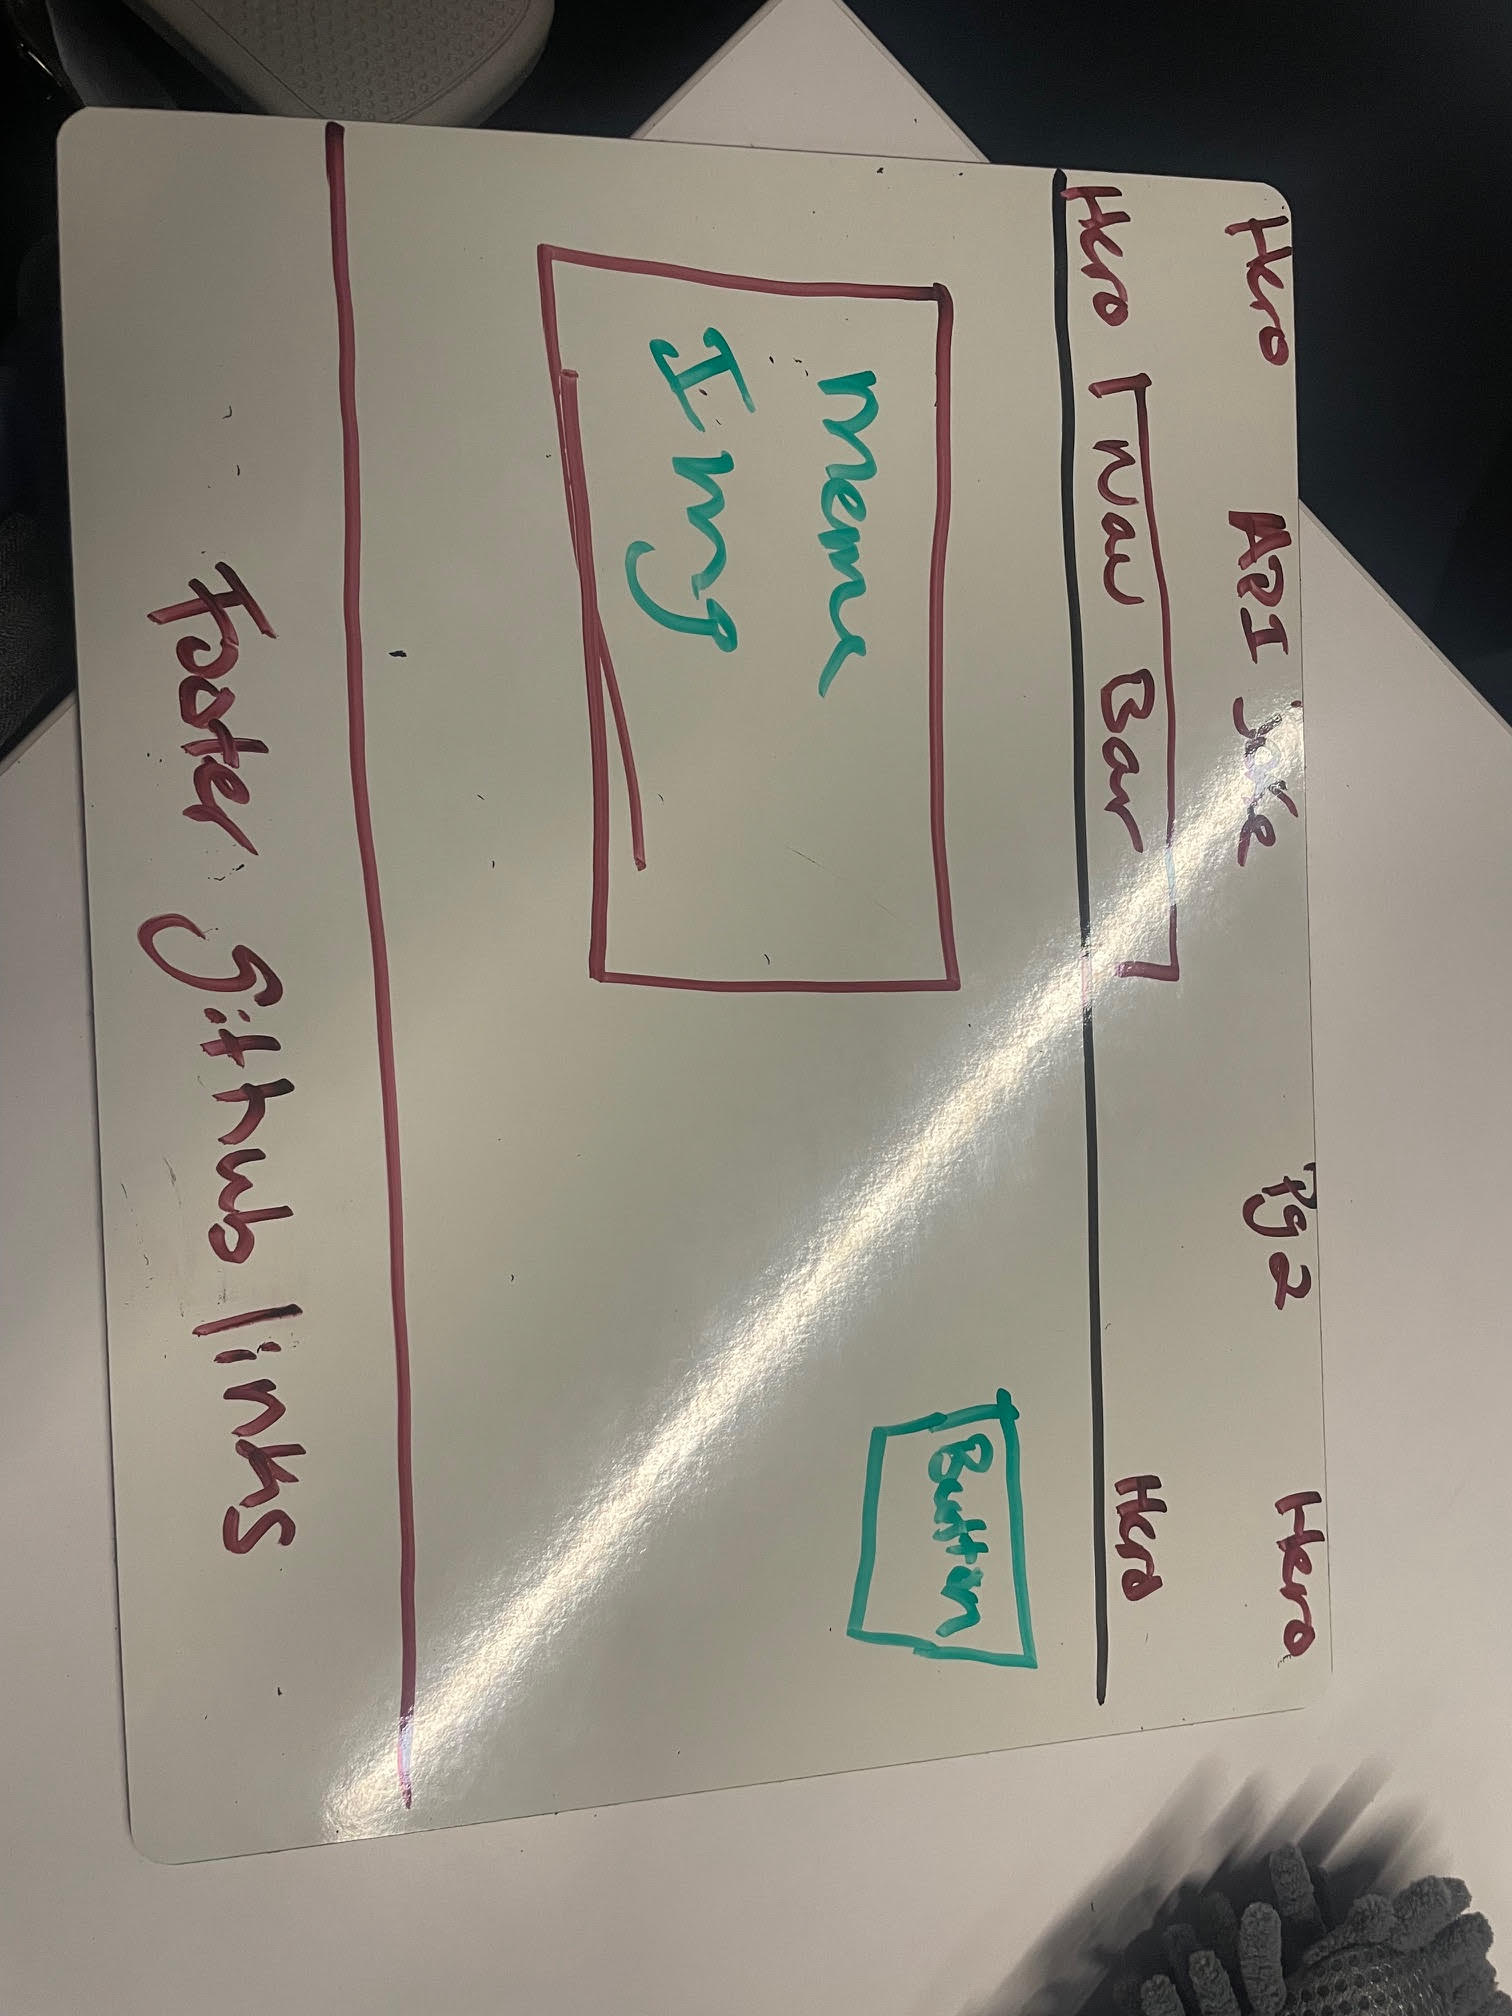 Hero API Joke Pg 2 Hero
Hero Nav Bar Hero
Button
Meme
Img
Footer Github links